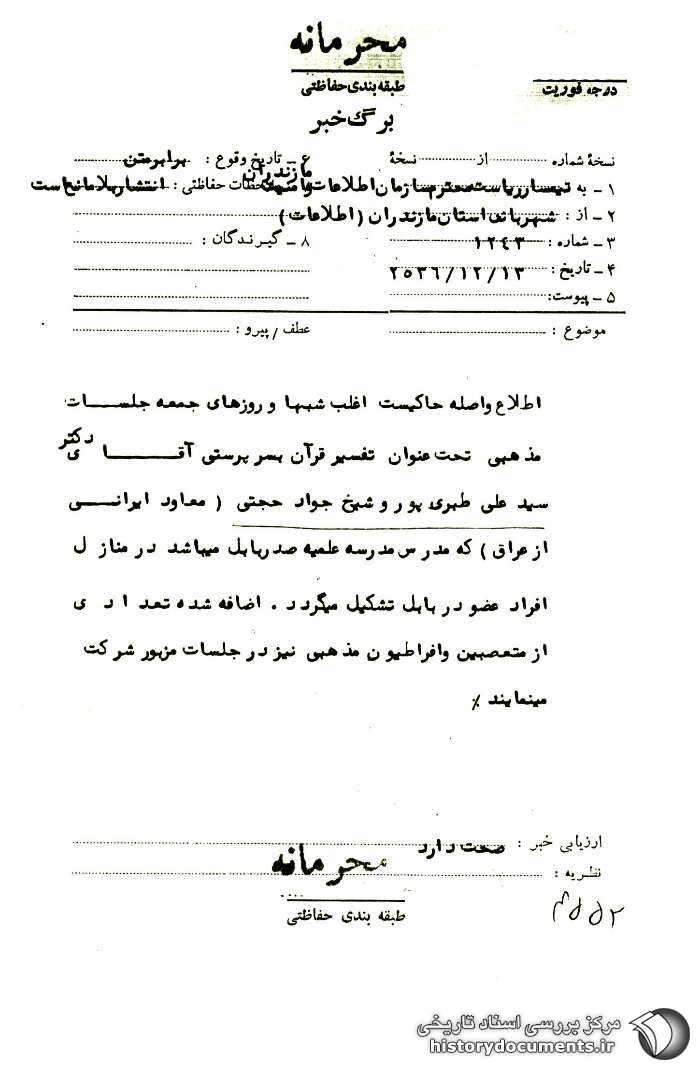 محرمانه
طبقه‌بندی حفاظتی
درجه فوریت
برگ خبر
نسخهٔ شماره از نسخهٔ
۱ ـ به تیمسار ریاست محترم سازمان اطلاعات و امنیت مازندران
۲ ـ از : شهربانی استان مازندران ( اطلاعات )
۳ ـ شماره : ۱۲٤۳
۴ ـ تاریخ : ۲۵۳۶/۱۲/۱۳
۵ ـ پیوست:
۶ ـ تاریخ وقوع : برابر متن
ملاحظات حفاظتی : انتشار بلامانع است
۸ ـ گیرندگان :
موضوع :
عطف / پیرو :
اطلاع واصله حاکیست اغلب شبها و روزهای جمعه جلسات
مذهبی تحت عنوان تفسیر قرآن بسرپرستی آقای دکتر
سید علی طبری پور و شیخ جواد حجتی ( معاود ایرانی
از عراق ) که مدرس مدرسه علمیه صدر بابل میباشد در منازل
افراد عضو در بابل تشکیل میگردد . اضافه شده تعدادی
از متعصبین و افراطیون مذهبی نیز در جلسات مزبور شرکت
مینمایند ٪
ارزیابی خبر : صحت دارد
نظریه :
محرمانه
طبقه بندی حفاظتی
مرکز بررسی اسناد تاریخی
historydocuments.ir